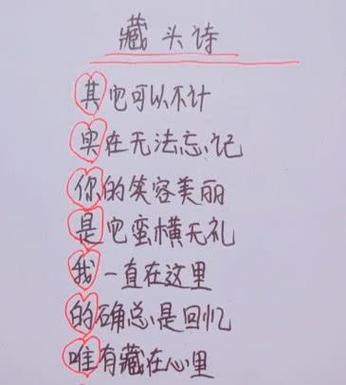 藏头诗
其它可以不计
实在无法忘记
你的笑容美丽
是它蛮横无礼
我一直在这里
的确总是回忆
唯有藏在心里